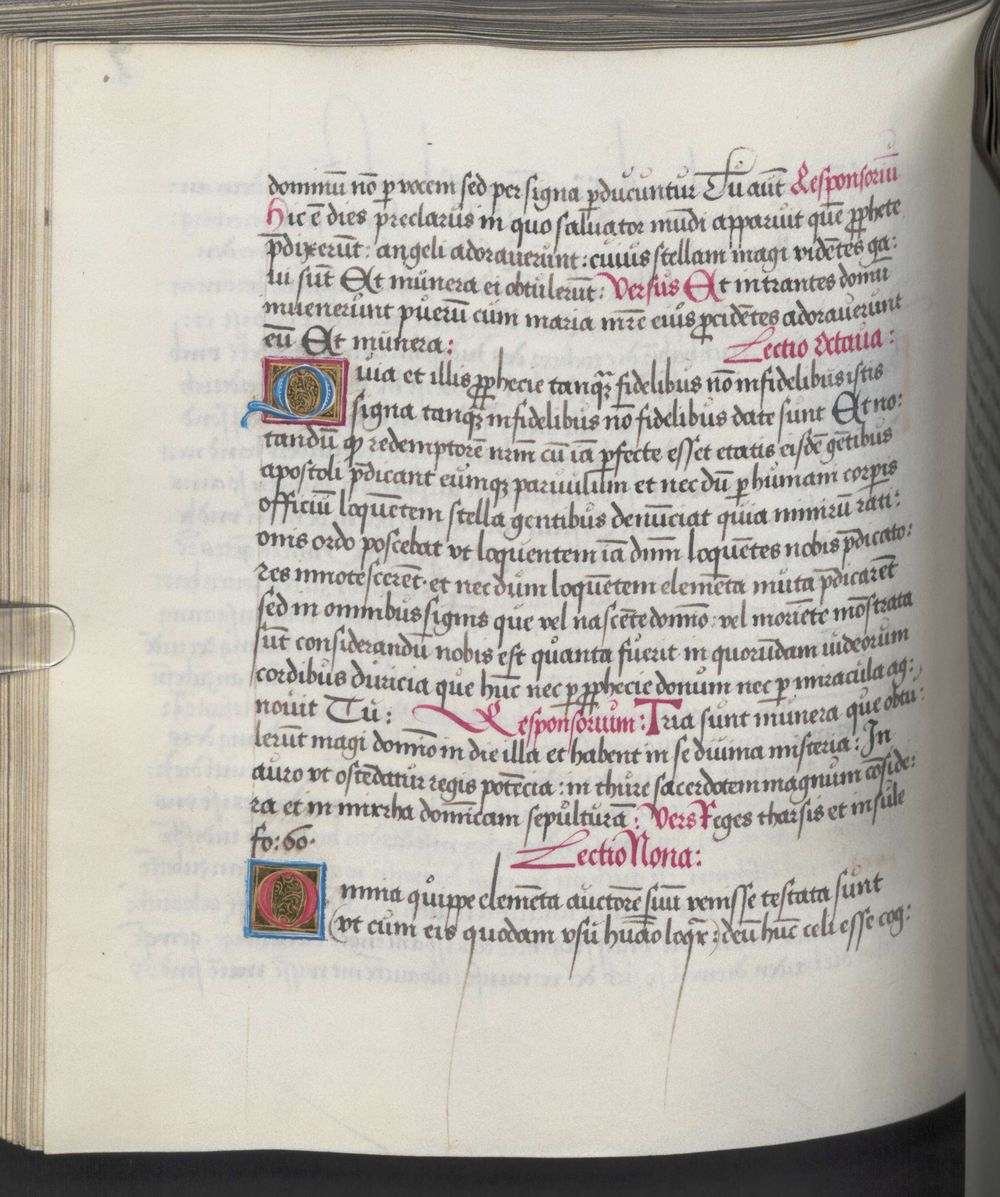 dominū nō ꝑ vocem sed per signa ꝓducuntur Tu aūt Responsoriū
Hic ē dies preclarus in quo saluator mūdi apparuit quē ꝓphete
p̄dixerūt: angeli adorauerunt: cuius stellam magi vidētes ga:
uisi sūt Et munera ei obtulerūt: Versus Et intrantes domū
inuenerunt puerū cum maria mr̄e eius ꝓcidētes adorauerunt
eū Et munera: Lectio octaua:
Quia et illis ꝓphecie tanqꝫ fidelibus nō infidelibus istis
signa tanqꝫ infidelibus nō fidelibus date sunt Et no:
tandū ꝙ redemptorē nrm̄ cū iā ꝑfecte esset etatis eisdē gētibus
apostoli p̄dicant eumqꝫ paruulum et nec dū ꝑ humani corꝑis
officiū loquentem stella gentibus denūciat quia nimirū rati:
onis ordo poscebat vt loquentem iā dnm̄ loquētes nobis p̄dicato:
res innotescerēt. et nec dum loquētem elemēta muta p̄dicarēt
sed in omnibus signis que vel nascēte domīo: vel moriēte mōstrata
sūt considerandū nobis est quanta fuerit in quorūdam iudeorum
cordibus duricia que hūc nec ꝑ ꝓphecie donum nec ꝑ miracula ag:
nouit Tu: Responsorium: Tria sunt munera que obtu:
lerūt magi domīo in die illa et habent in se diuina misteria: In
auro vt ostēdatur regis potēcia: in thure sacerdotem magnum cōside:
ra et in mirrha domīcam sepulturā: Vers Reges tharsis et insule
fo: 60. Lectio Nona:
Omnia quippe elemēta auctorē suū venisse testata sunt
(vt cum eis quodam vsu hūāo loqr̄:) deū hūc celi esse cog: